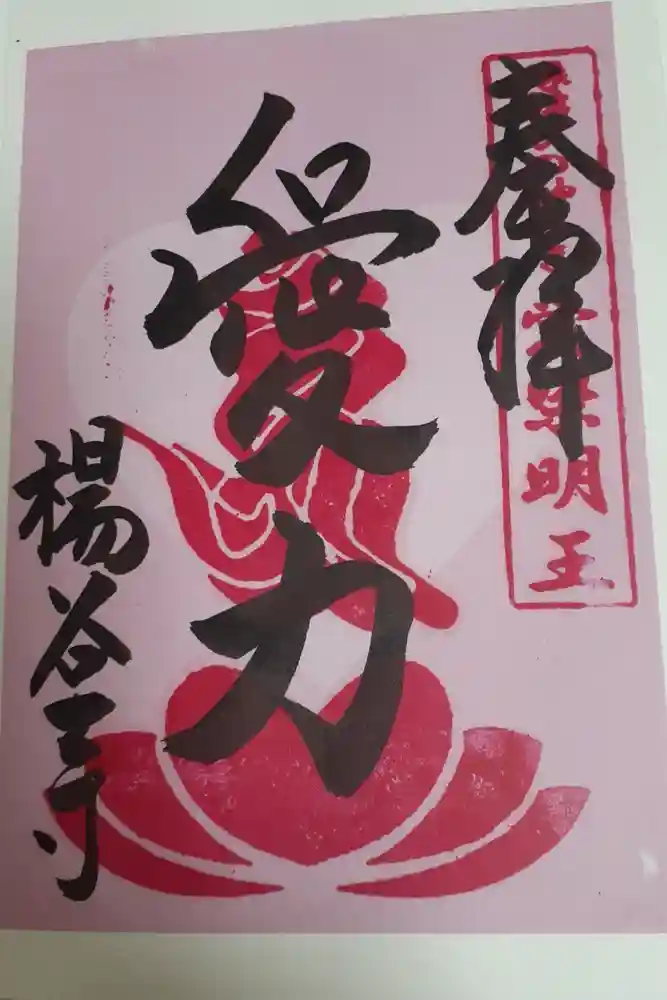 奉拝
明王
愛力
楊谷寺